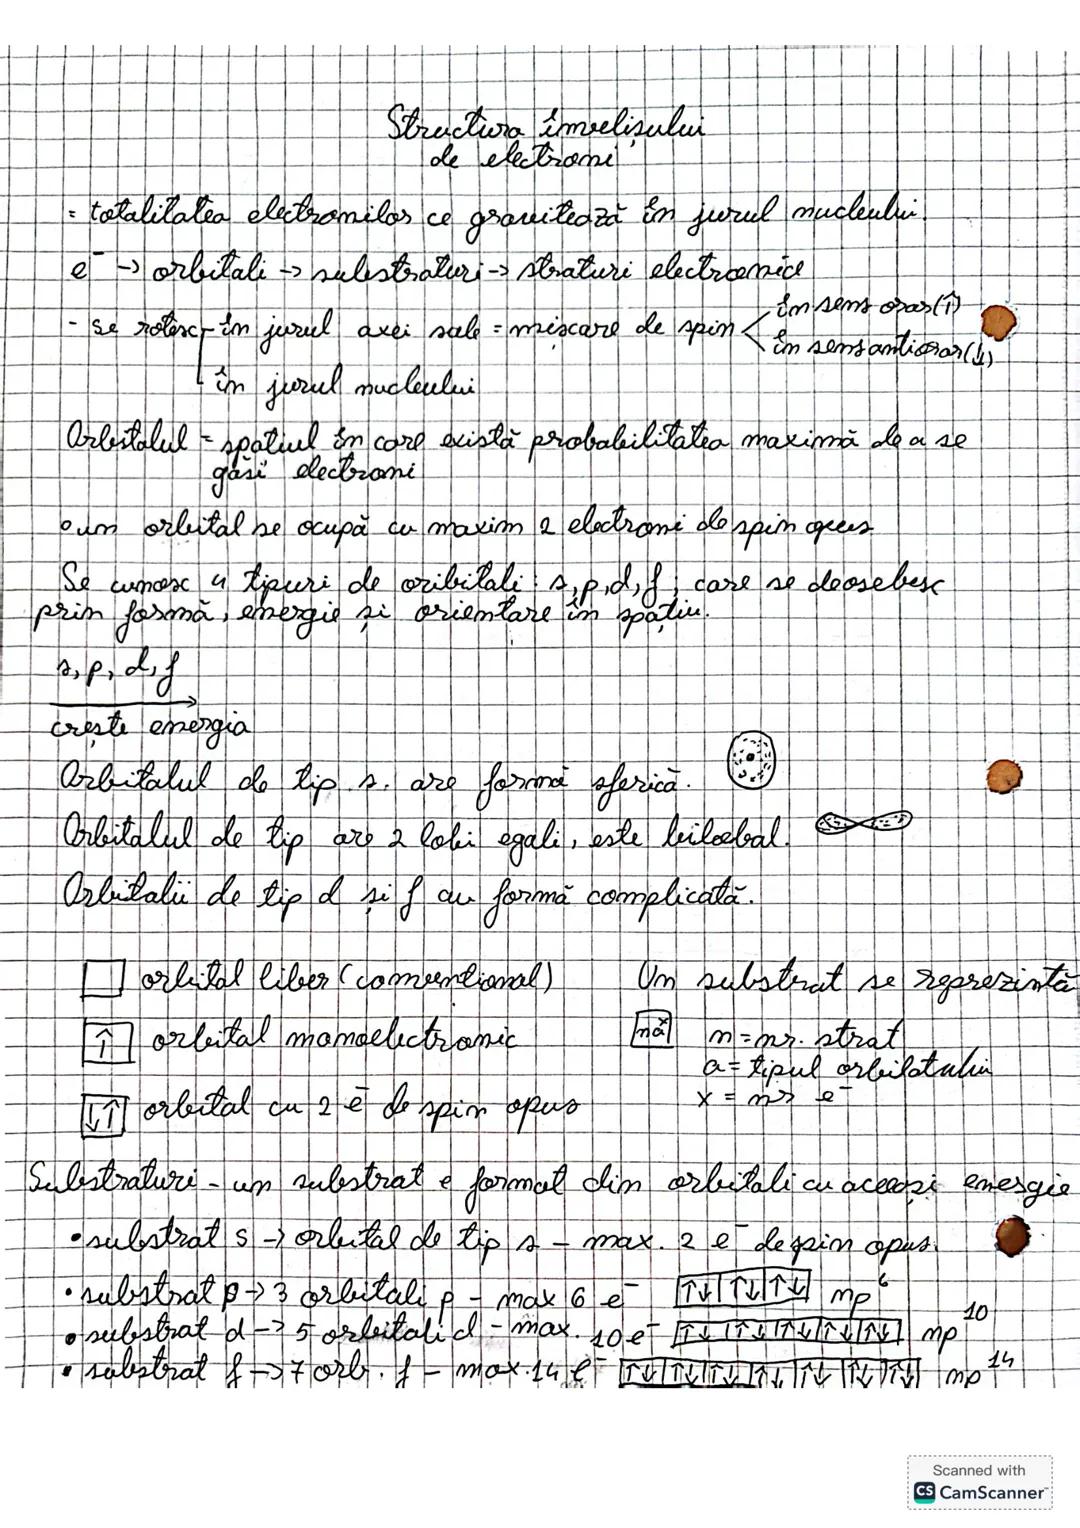 Structura învelișului
de electroni
= totalitatea electronilor ce gravitează în jurul nucleului.
e⁻ → orbitali → substraturi → straturi electronice
- se rotesc - în jurul axei sale = mișcare de spin < în sens orar (↑)
în sens antiorar (↓)
în jurul nucleului
Orbitalul = spațiul în care există probabilitatea maximă de a se
găsi electroni
• un orbital se ocupă cu maxim 2 electroni de spin opus
Se cunosc 4 tipuri de oribitali: s, p, d, f, care se deosebesc
prin formă, energie și orientare în spațiu.
s, p, d, f
crește energia
Orbitalul de tip s. are formă sferică.
Orbitalul de tip are 2 lobi egali, este bilobal.
Orbitalii de tip d și f au formă complicată.
orbital liber (convențional)
Un substrat se reprezintă
↑ orbital monoelectronic
naˣ n = nr. strat
a = tipul orbilatului
x = nr e⁻
↓↑ orbital cu 2 e⁻ de spin opus
Substraturi - un substrat e format din orbitali cu aceeași energie
• substrat s → orbital de tip s - max. 2 e⁻ de spin opus.
• substrat p → 3 orbitali p - max 6 e⁻ ↑↓ ↑↓ ↑↓ np⁶
• substrat d → 5 orbitali d - max. 10 e⁻ ↑↓ ↑↓ ↑↓ ↑↓ ↑↓ np¹⁰
• substrat f → 7 orb. f - max. 14 e⁻ ↑↓ ↑↓ ↑↓ ↑↓ ↑↓ ↑↓ ↑↓ np¹⁴
Scanned with
CS CamScanner